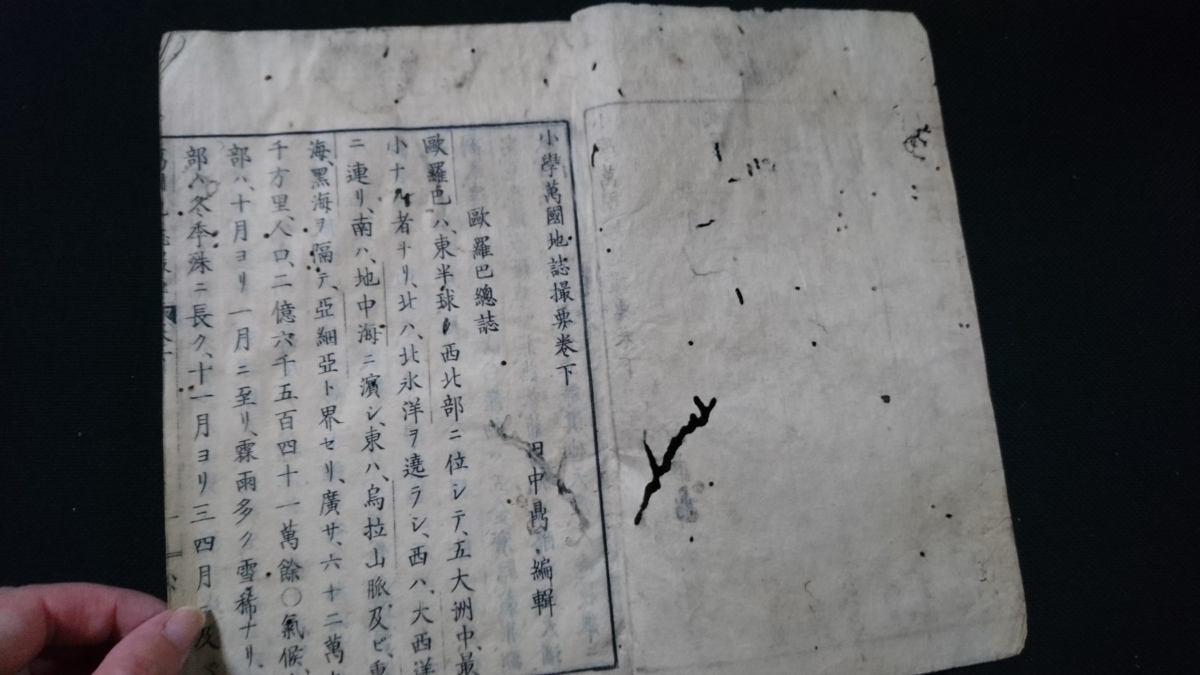 小學萬國地誌撮要卷下
田中鼎編輯
歐羅巴總誌
歐羅巴ハ、東半球ノ西北部ニ位シテ、五大洲中、最
小ナル者ナリ、北ハ、北氷洋ヲ遶ラシ、西ハ、大西洋
ニ連リ、南ハ、地中海ニ濱シ、東ハ、烏拉山脈及ビ裏
海、黑海ヲ隔テ、亞細亞ト界セリ、廣サ、六十二萬
千方里、人口、二億六千五百四十一萬餘〇氣候、
部ハ、十月ヨリ一月ニ至リ、霖雨多ク雪稀ナリ、
部ハ冬季殊ニ長ク、十一月ヨリ三四月ニ及